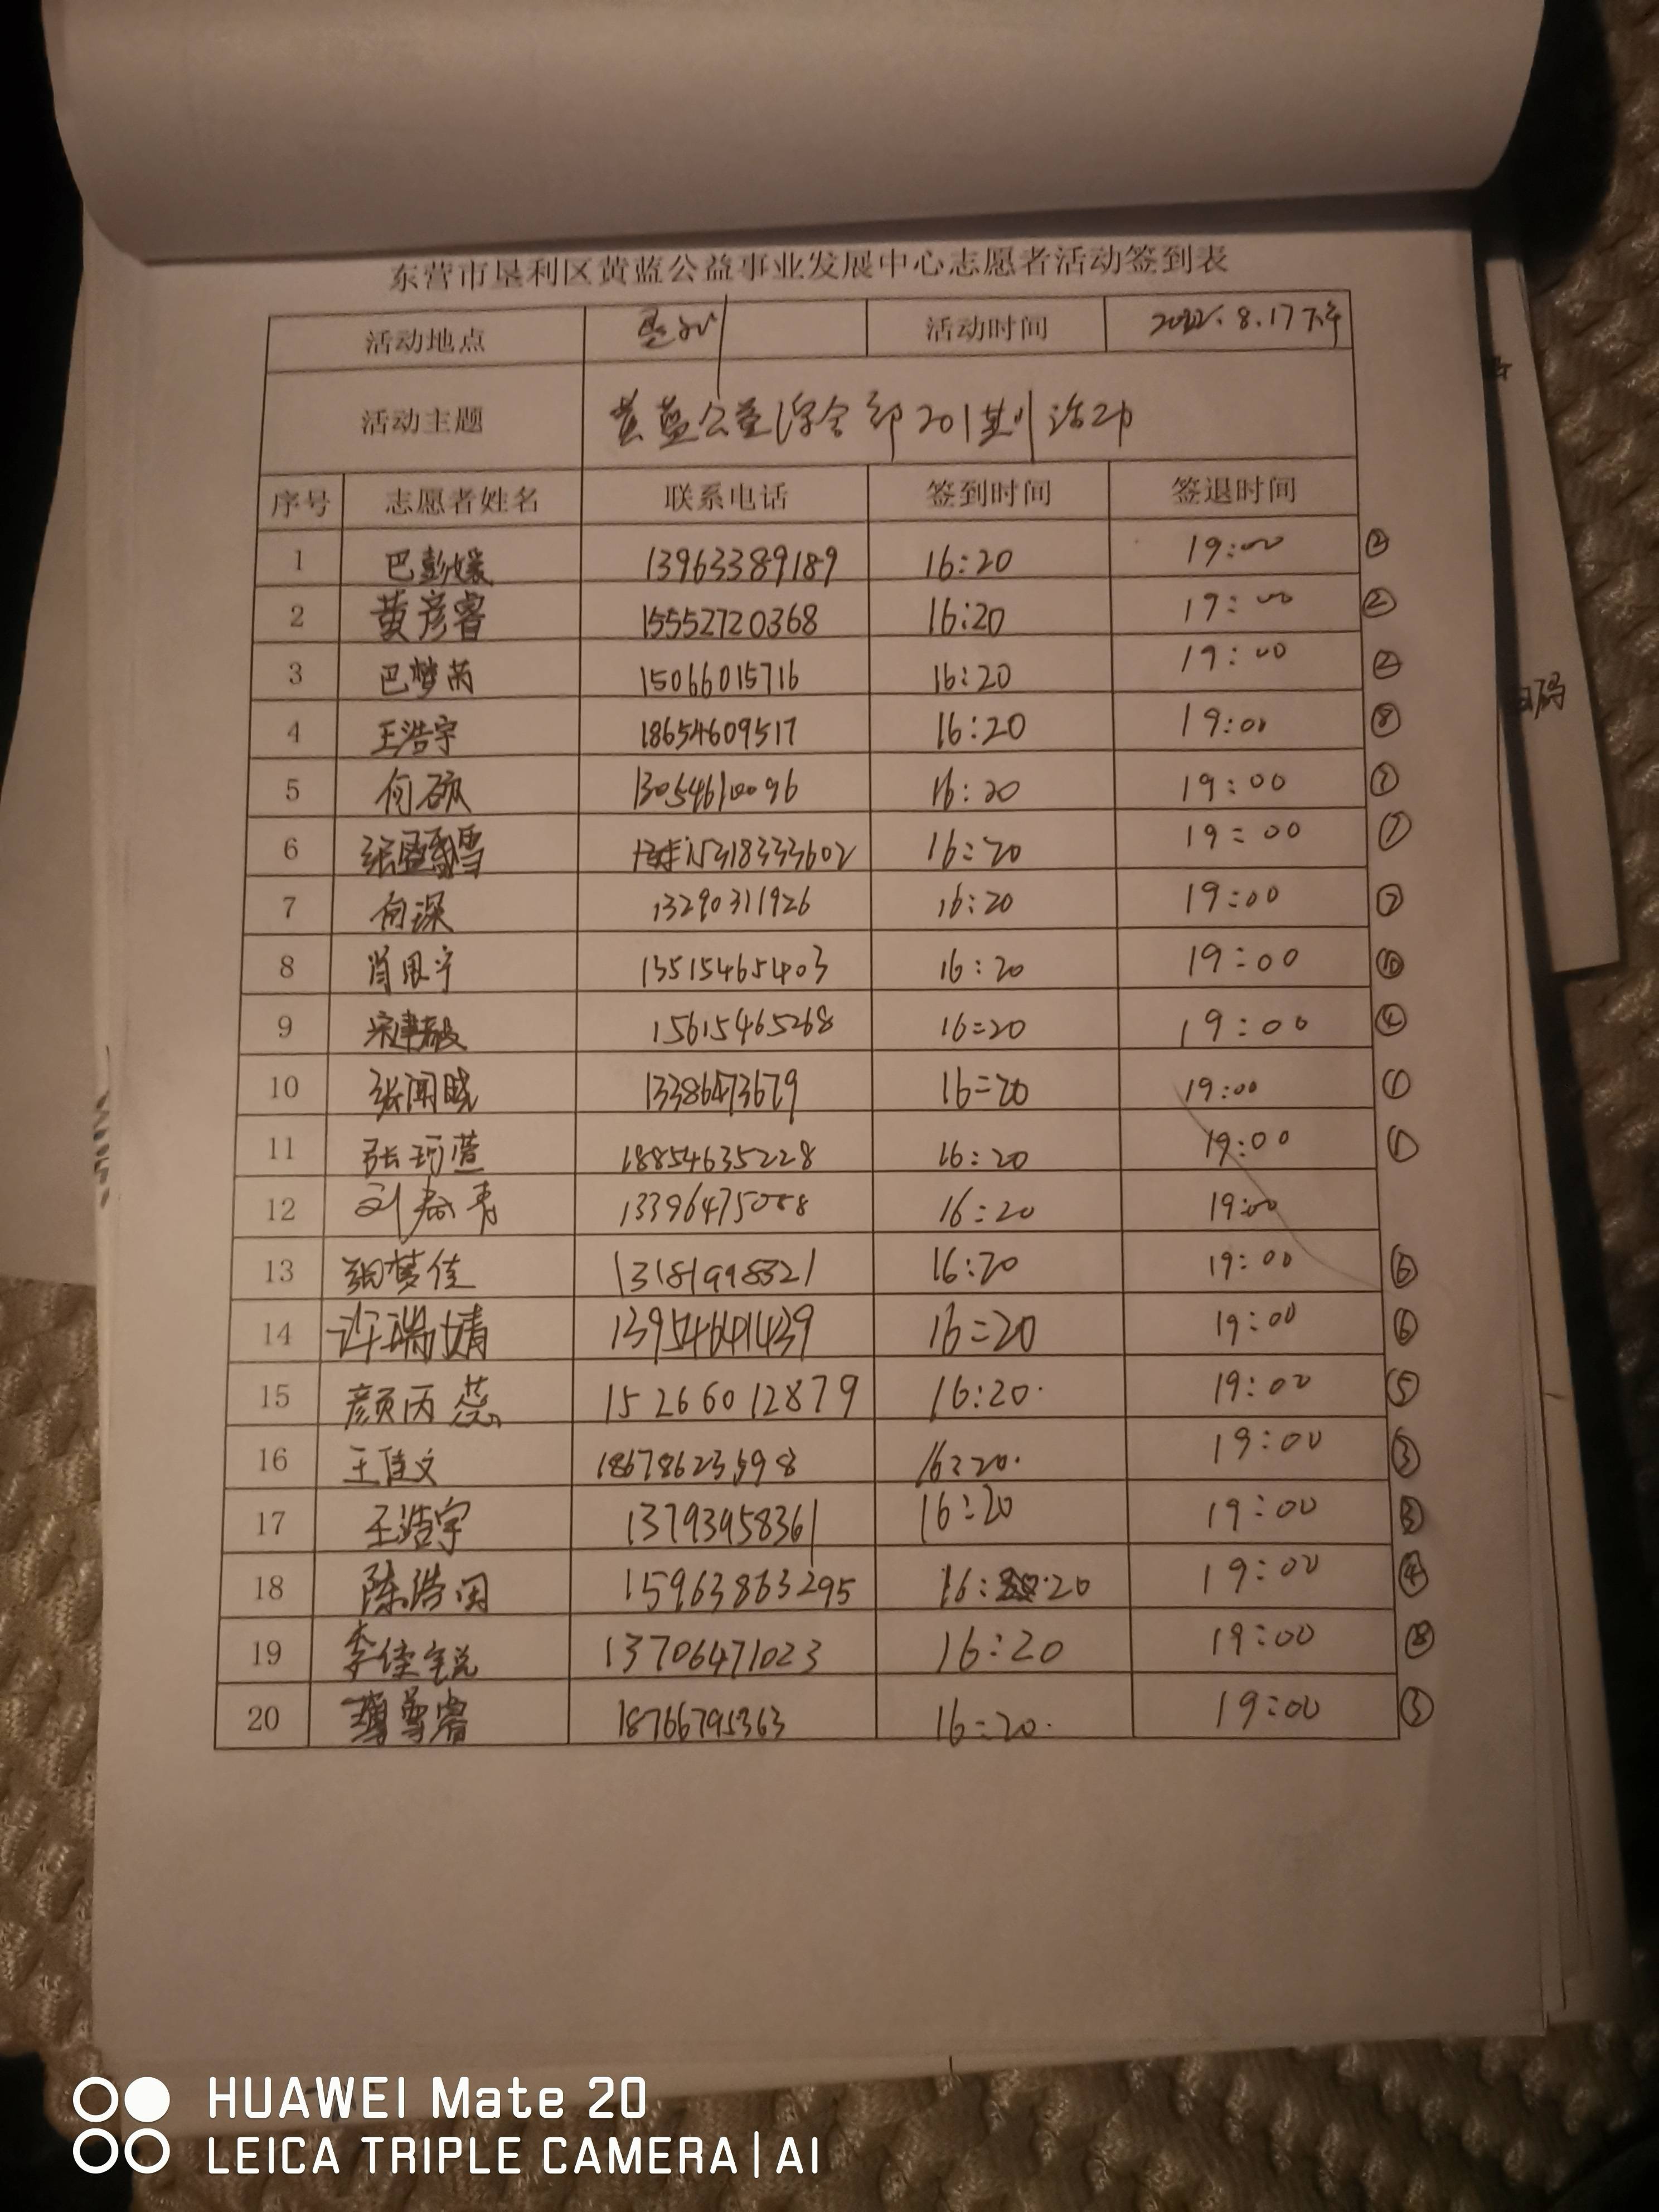 东营市垦利区黄蓝公益事业发展中心志愿者活动签到表
活动地点 垦利 活动时间 2022.8.17下午
活动主题 黄蓝公益 201期活动
序号 志愿者姓名 联系电话 签到时间 签退时间
1 巴彭媛 13963389189 16:20 19:00 ②
2 黄彦睿 15552720368 16:20 19:00 ②
3 巴梦芮 15066015716 16:20 19:00 ②
4 王浩宇 18654609517 16:20 19:00 ⑧
5 16:20 19:00 ⑦
6 15318333602 16:20 19:00 ⑦
7 13290311926 16:20 19:00 ⑦
8 肖思宁 13515465403 16:20 19:00 ⑩
9 15615465268 16:20 19:00 ④
10 张闻晓 16:20 19:00 ①
11 张珂萱 18854635228 16:20 19:00 ①
12 刘春青 16:20 19:00
13 梦佳 13181998321 16:20 19:00 ⑥
14 许瑞婧 16:20 19:00 ⑥
15 颜丙蕊 15266012879 16:20 19:00 ⑤
16 王佳文 16:20 19:00 ③
17 王浩宇 13793958361 16:20 19:00 ③
18 陈浩 15963863295 16:20 19:00 ④
19 李佳锐 13706471023 16:20 19:00 ⑧
20 18766795363 16:20 19:00
码
HUAWEI Mate 20
LEICA TRIPLE CAMERA | AI